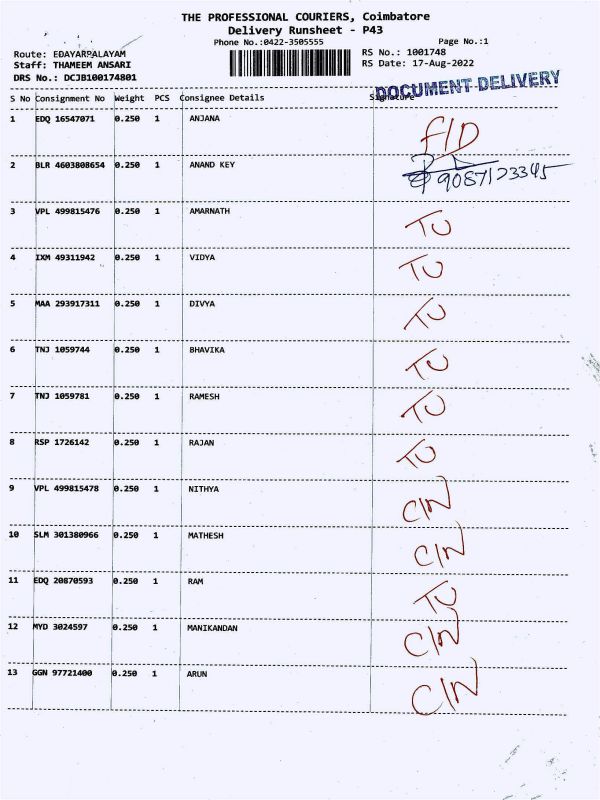 THE PROFESSIONAL COURIERS, Coimbatore
Delivery Runsheet - P43
Phone No.:0422-3505555 Page No.:1
Route: EDAYARPALAYAM RS No.: 1001748
Staff: THAMEEM ANSARI RS Date: 17-Aug-2022
DRS No.: DCJB100174801
DOCUMENT DELIVERY
S No Consignment No Weight PCS Consignee Details Signature
1 EDQ 16547071 0.250 1 ANJANA F/D
2 BLR 4603808654 0.250 1 ANAND KEY 9087123345
3 VPL 499815476 0.250 1 AMARNATH TU
4 IXM 49311942 0.250 1 VIDYA TU
5 MAA 293917311 0.250 1 DIVYA TU
6 TNJ 1059744 0.250 1 BHAVIKA TU
7 TNJ 1059781 0.250 1 RAMESH TU
8 RSP 1726142 0.250 1 RAJAN TU
9 VPL 499815478 0.250 1 NITHYA C/N
10 SLM 301380966 0.250 1 MATHESH C/N
11 EDQ 20870593 0.250 1 RAM TU
12 MYD 3024597 0.250 1 MANIKANDAN C/N
13 GGN 97721400 0.250 1 ARUN C/N